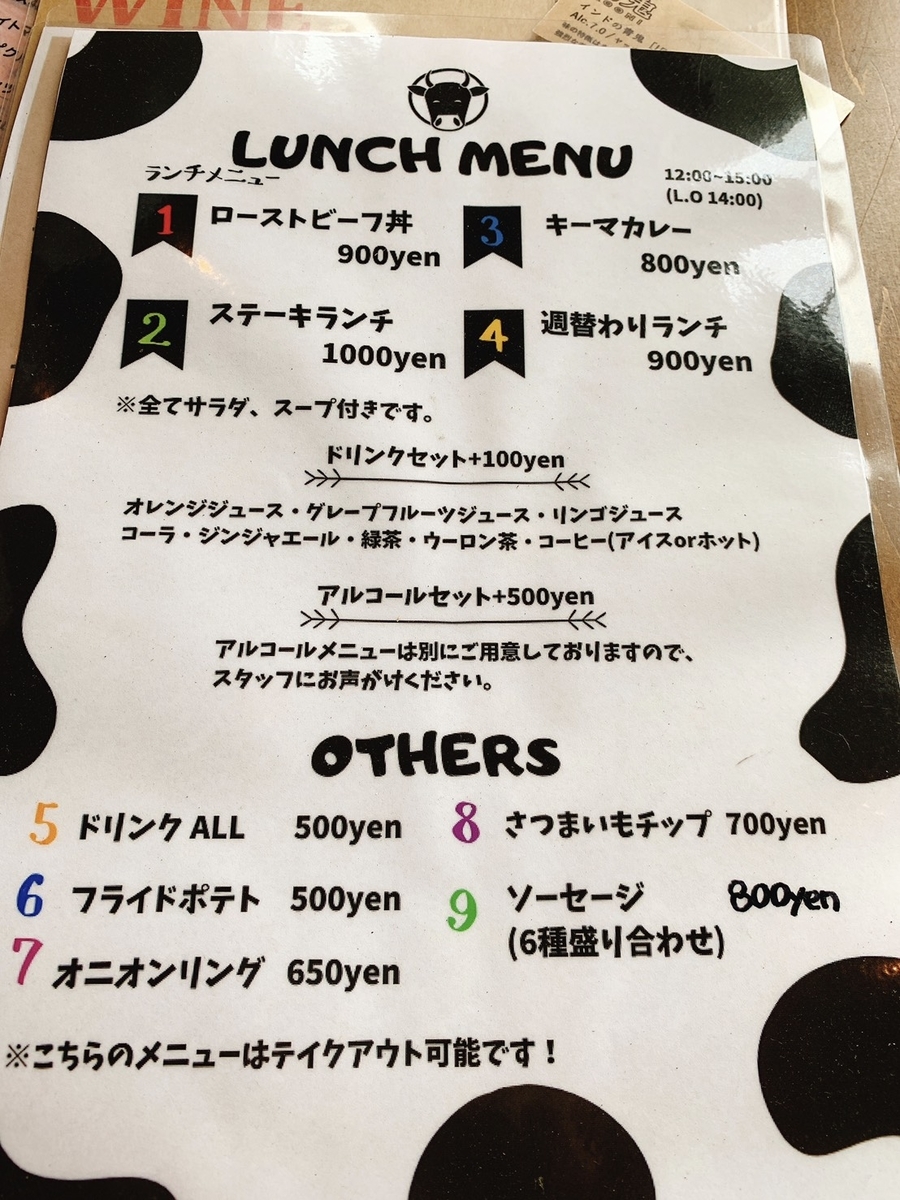 WINE
インドの青鬼
LUNCH MENU
ランチメニュー
12:00~15:00
(L.O 14:00)
1 ローストビーフ丼
900yen
3 キーマカレー
800yen
2 ステーキランチ
1000yen
4 週替わりランチ
900yen
※全てサラダ、スープ付きです。
ドリンクセット+100yen
オレンジジュース・グレープフルーツジュース・リンゴジュース
コーラ・ジンジャエール・緑茶・ウーロン茶・コーヒー(アイスorホット)
アルコールセット+500yen
アルコールメニューは別にご用意しておりますので、
スタッフにお声がけください。
OTHERS
5 ドリンク ALL 500yen
8 さつまいもチップ 700yen
6 フライドポテト 500yen
9 ソーセージ 800yen
(6種盛り合わせ)
7 オニオンリング 650yen
※こちらのメニューはテイクアウト可能です！